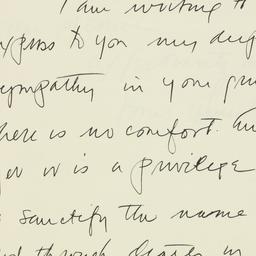 I am writing to
xpress to you my deep
sympathy in your gri
here is no comfort. An
yet it is a privilege
sanctify the name
through deaths in